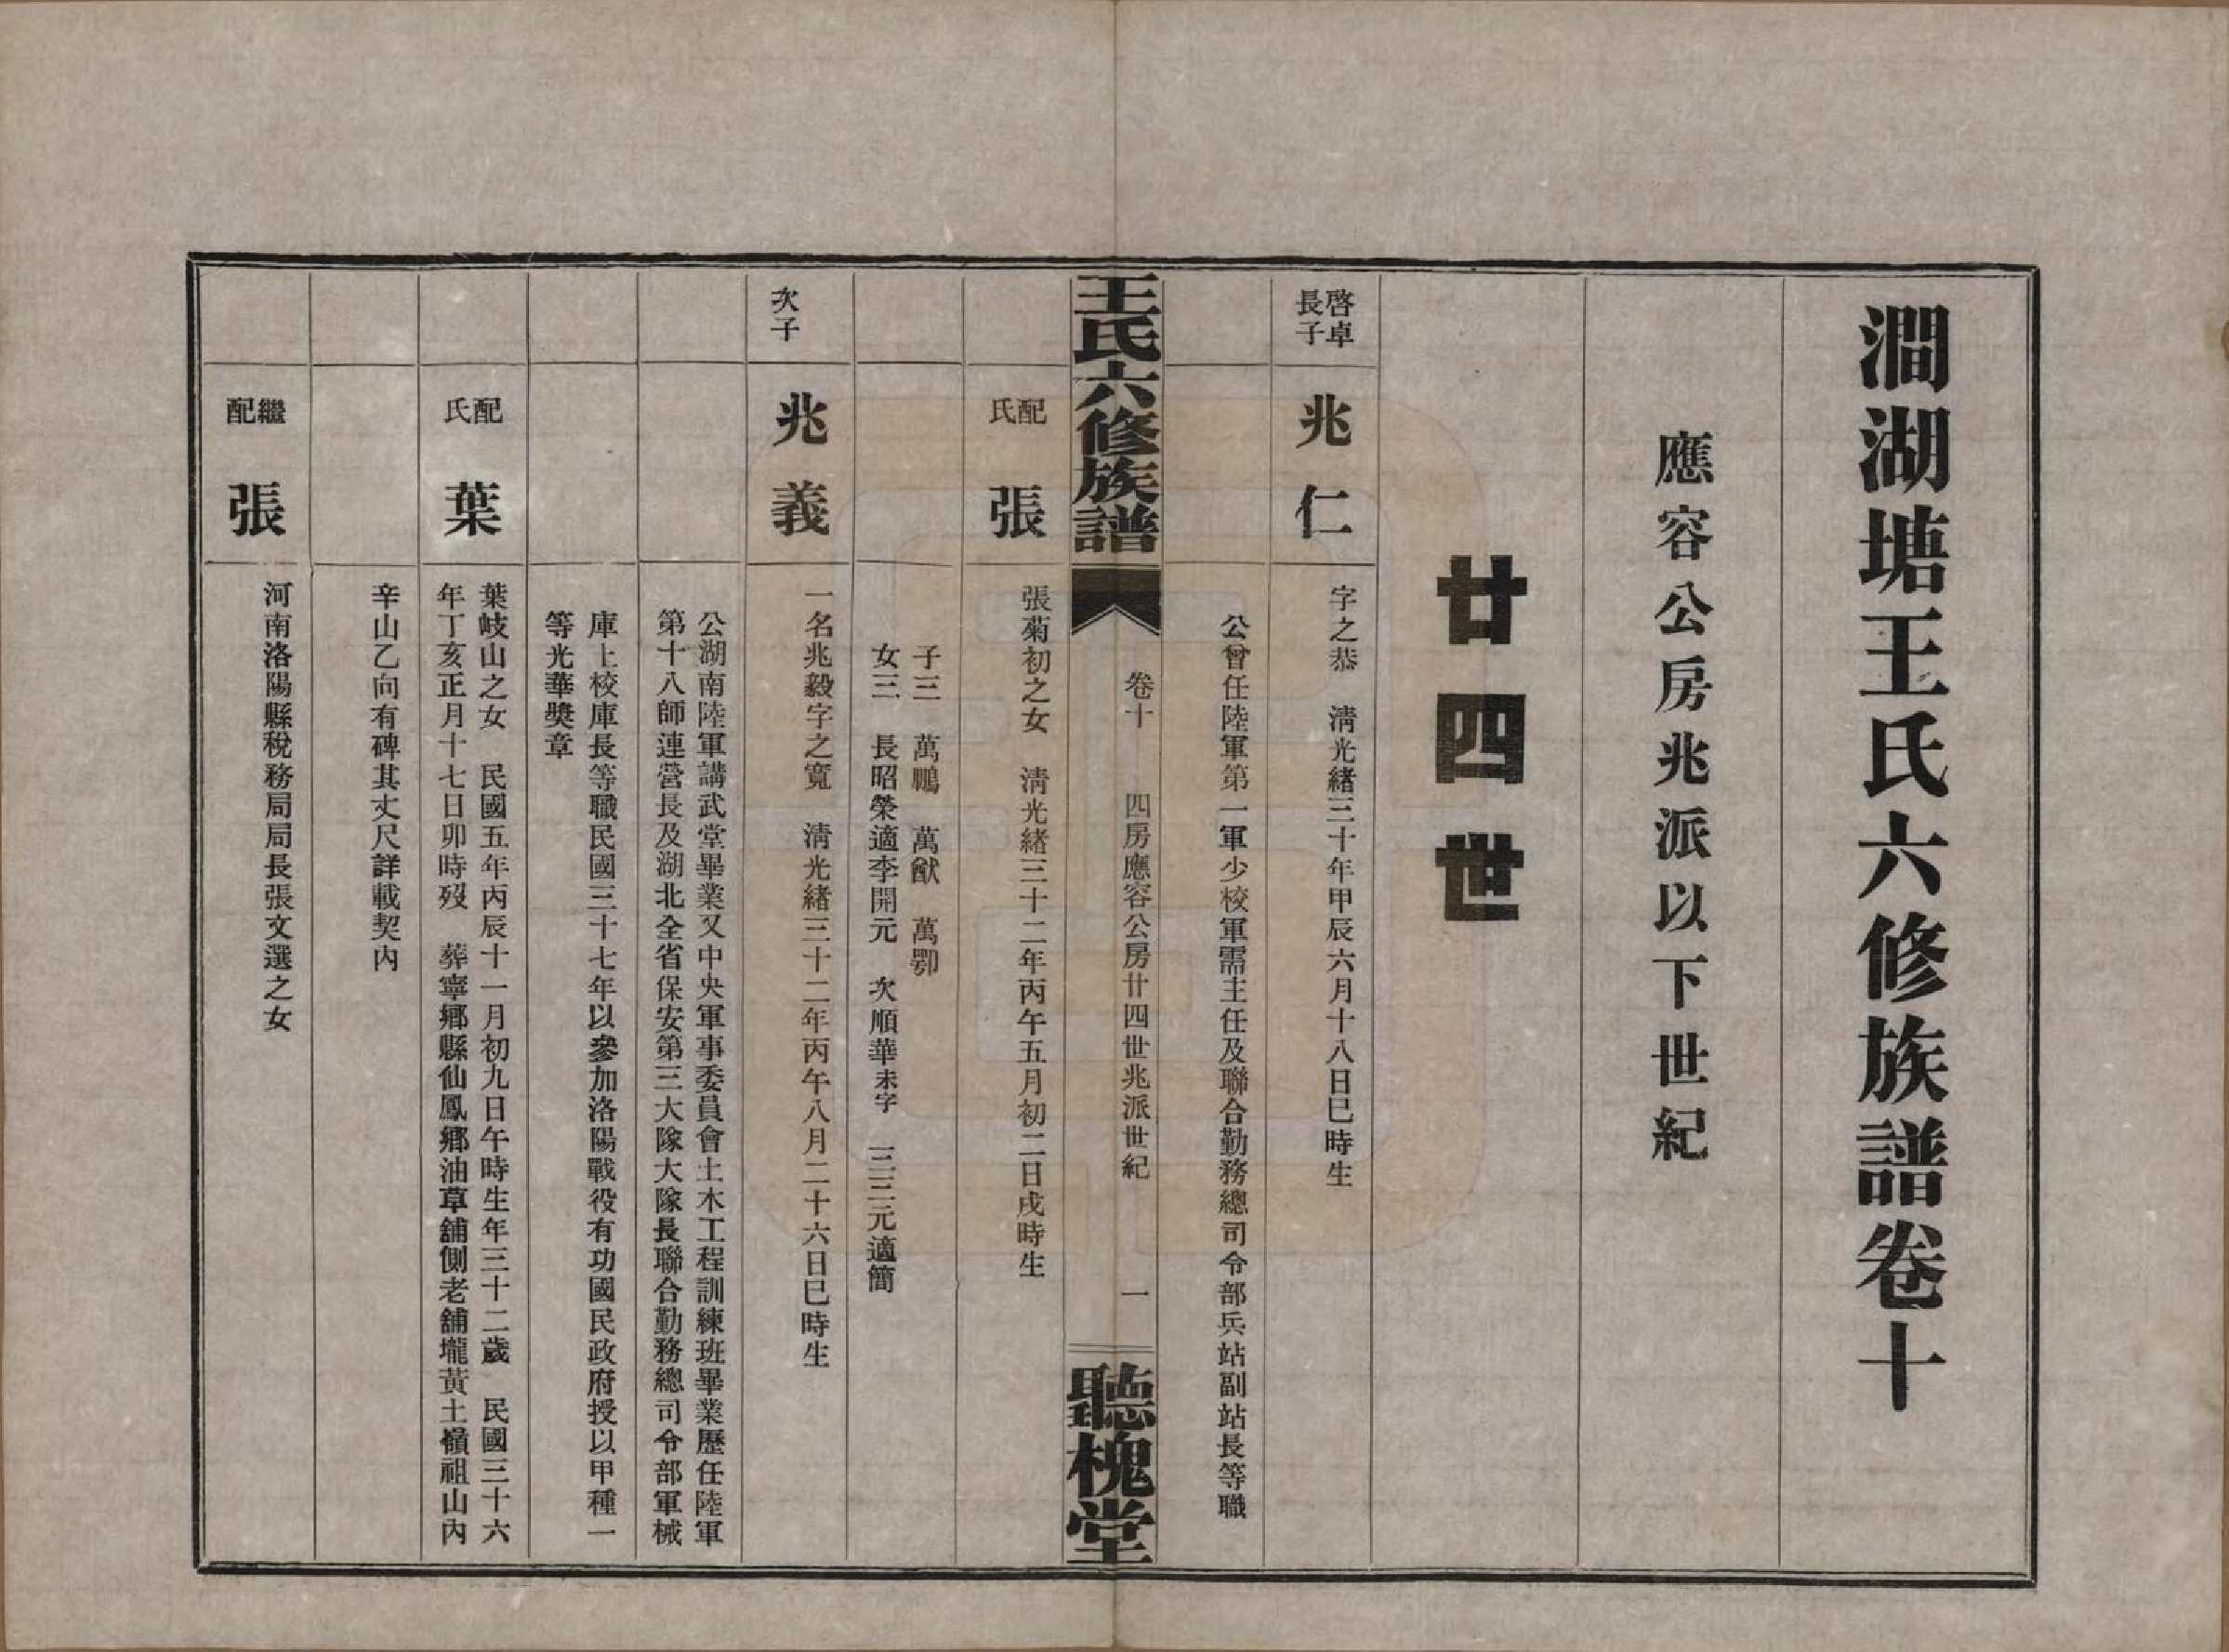 澗湖塘王氏六修族譜卷十
應容公房兆派以下世紀
廿四世
啓卓
長子
兆仁
字之恭　清光緒三十年甲辰六月十八日巳時生
公曾任陸軍第一軍少校軍需主任及聯合勤務總司令部兵站副站長等職
王氏六修族譜
卷十　四房應容公房廿四世兆派世紀　一
聽槐堂
配
氏
張
張菊初之女　清光緒三十二年丙午五月初二日戌時生
子三　萬鵬　萬猷　萬鄂
女三　長昭榮適李開元　次順華未字　三三元適簡
次子
兆義
一名兆毅字之寬　清光緒三十二年丙午八月二十六日巳時生
公湖南陸軍講武堂畢業又中央軍事委員會土木工程訓練班畢業歷任陸軍
第十八師連營長及湖北全省保安第三大隊大隊長聯合勤務總司令部軍械
庫上校庫長等職民國三十七年以參加洛陽戰役有功國民政府授以甲種一
等光華獎章
配
氏
葉
葉岐山之女　民國五年丙辰十一月初九日午時生年三十二歲　民國三十六
年丁亥正月十七日卯時歿　葬寧鄉縣仙鳳鄉油草舖側老舖壠黃土嶺祖山內
辛山乙向有碑其丈尺詳載契內
繼
配
張
河南洛陽縣稅務局局長張文選之女